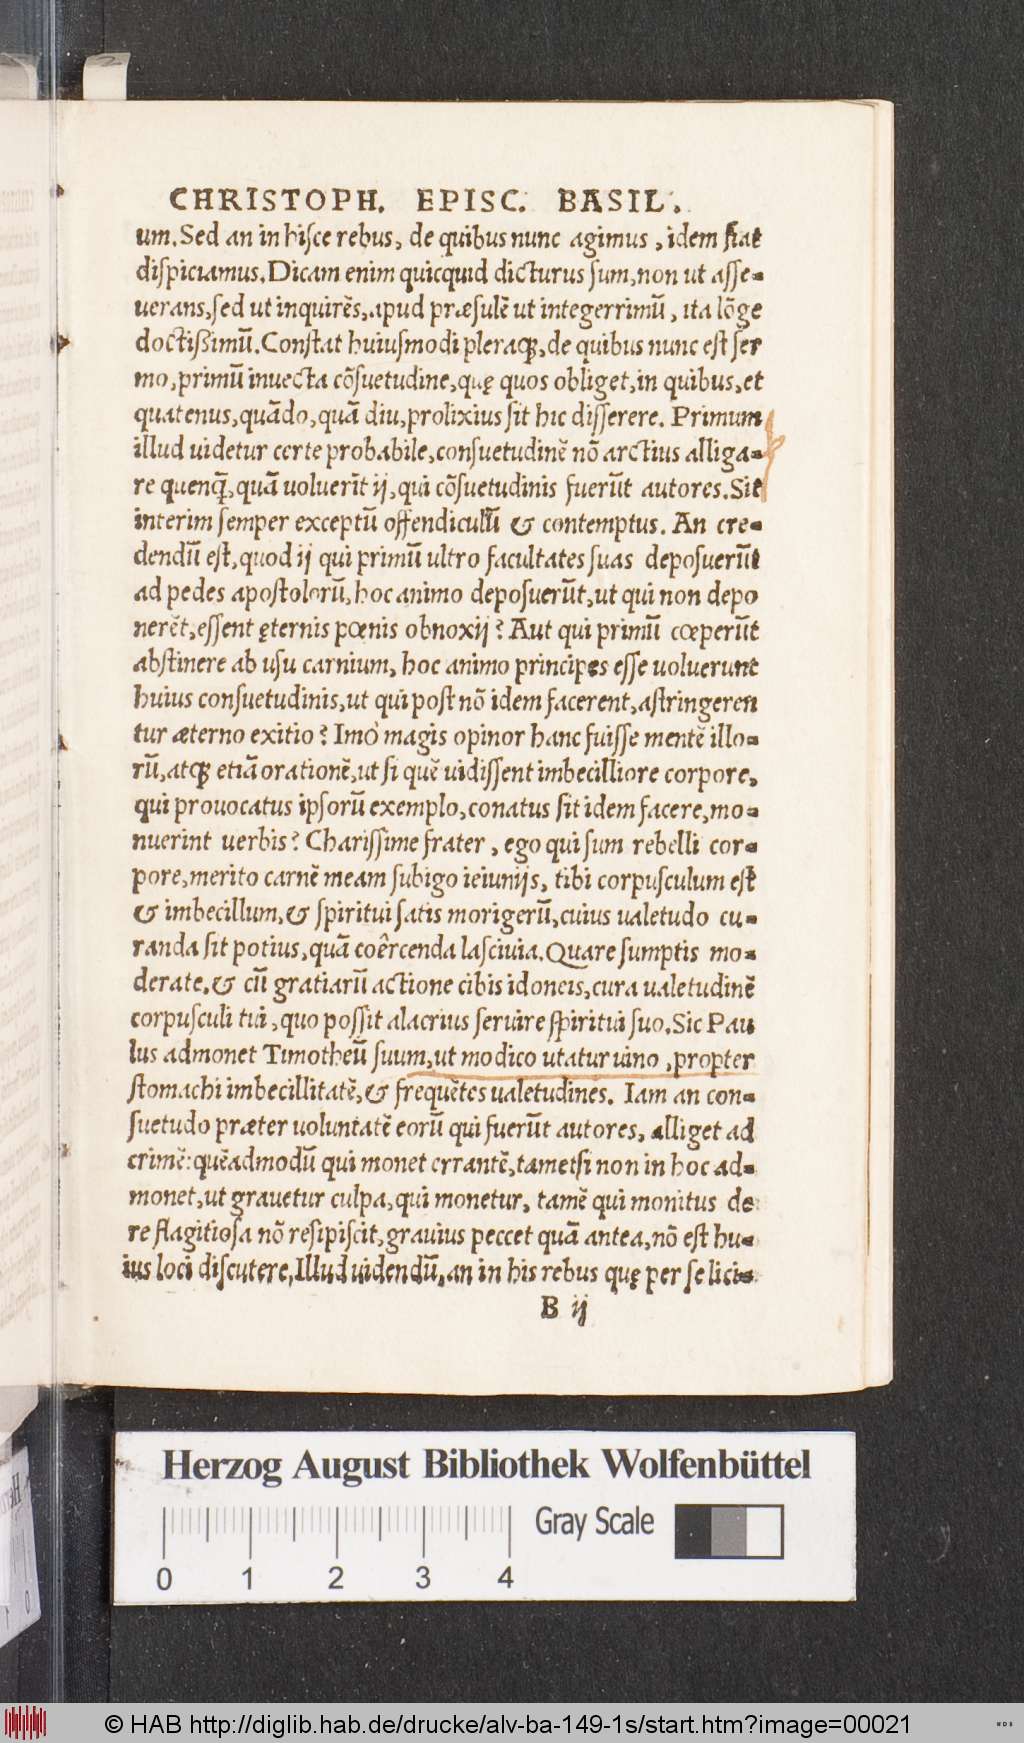 CHRISTOPH. EPISC. BASIL.
um. Sed an in hisce rebus, de quibus nunc agimus, idem fiat
dispiciamus. Dicam enim quicquid dicturus sum, non ut asse-
uerans, sed ut inquirẽs, apud præsulẽ ut integerrimũ, ita lõge
doctißimũ. Constat huiusmodi pleraq;, de quibus nunc est ser
mo, primũ inuecta cõsuetudine, quę quos obliget, in quibus, et
quatenus, quãdo, quã diu, prolixius sit hic disserere. Primum
illud uidetur certe probabile, consuetudinẽ nõ arctius alliga-
re quenq̃, quã uoluerĩt ij, qui cõsuetudinis fuerũt autores. Sit
interim semper exceptũ offendiculũ & contemptus. An cre-
dendũ est, quod ij qui primũ ultro facultates suas deposuerũt
ad pedes apostolorũ, hoc animo deposuerũt, ut qui non depo
nerẽt, essent ęternis pœnis obnoxij? Aut qui primũ cœperũt
abstinere ab usu carnium, hoc animo principes esse uoluerunt
huius consuetudinis, ut qui post nõ idem facerent, astringeren
tur æterno exitio? Imò magis opinor hanc fuisse mentẽ illo-
rũ, atq; etiã orationẽ, ut si quẽ uidissent imbecilliore corpore,
qui prouocatus ipsorũ exemplo, conatus sit idem facere, mo-
nuerint uerbis? Charissime frater, ego qui sum rebelli cor-
pore, merito carnẽ meam subigo ieiunijs, tibi corpusculum est
& imbecillum, & spiritui satis morigerũ, cuius ualetudo cu-
randa sit potius, quã coêrcenda lasciuia. Quare sumptis mo-
derate, & cũ gratiarũ actione cibis idoneis, cura ualetudinẽ
corpusculi tui, quo possit alacrius seruire spiritui suo. Sic Pau
lus admonet Timotheũ suum, ut modico utatur uino, propter
stomachi imbecillitatẽ, & frequẽtes ualetudines. Iam an con-
suetudo præter uoluntatẽ eorũ qui fuerũt autores, alliget ad
crimẽ: quẽadmodũ qui monet errantẽ, tametsi non in hoc ad-
monet, ut grauetur culpa, qui monetur, tamẽ qui monitus de
re flagitiosa nõ resipiscit, grauius peccet quã antea, nõ est hu-
ius loci discutere. Illud uidendũ, an in his rebus quę per se lici-
B ij
Herzog August Bibliothek Wolfenbüttel
Gray Scale
0 1 2 3 4
© HAB http://diglib.hab.de/drucke/alv-ba-149-1s/start.htm?image=00021